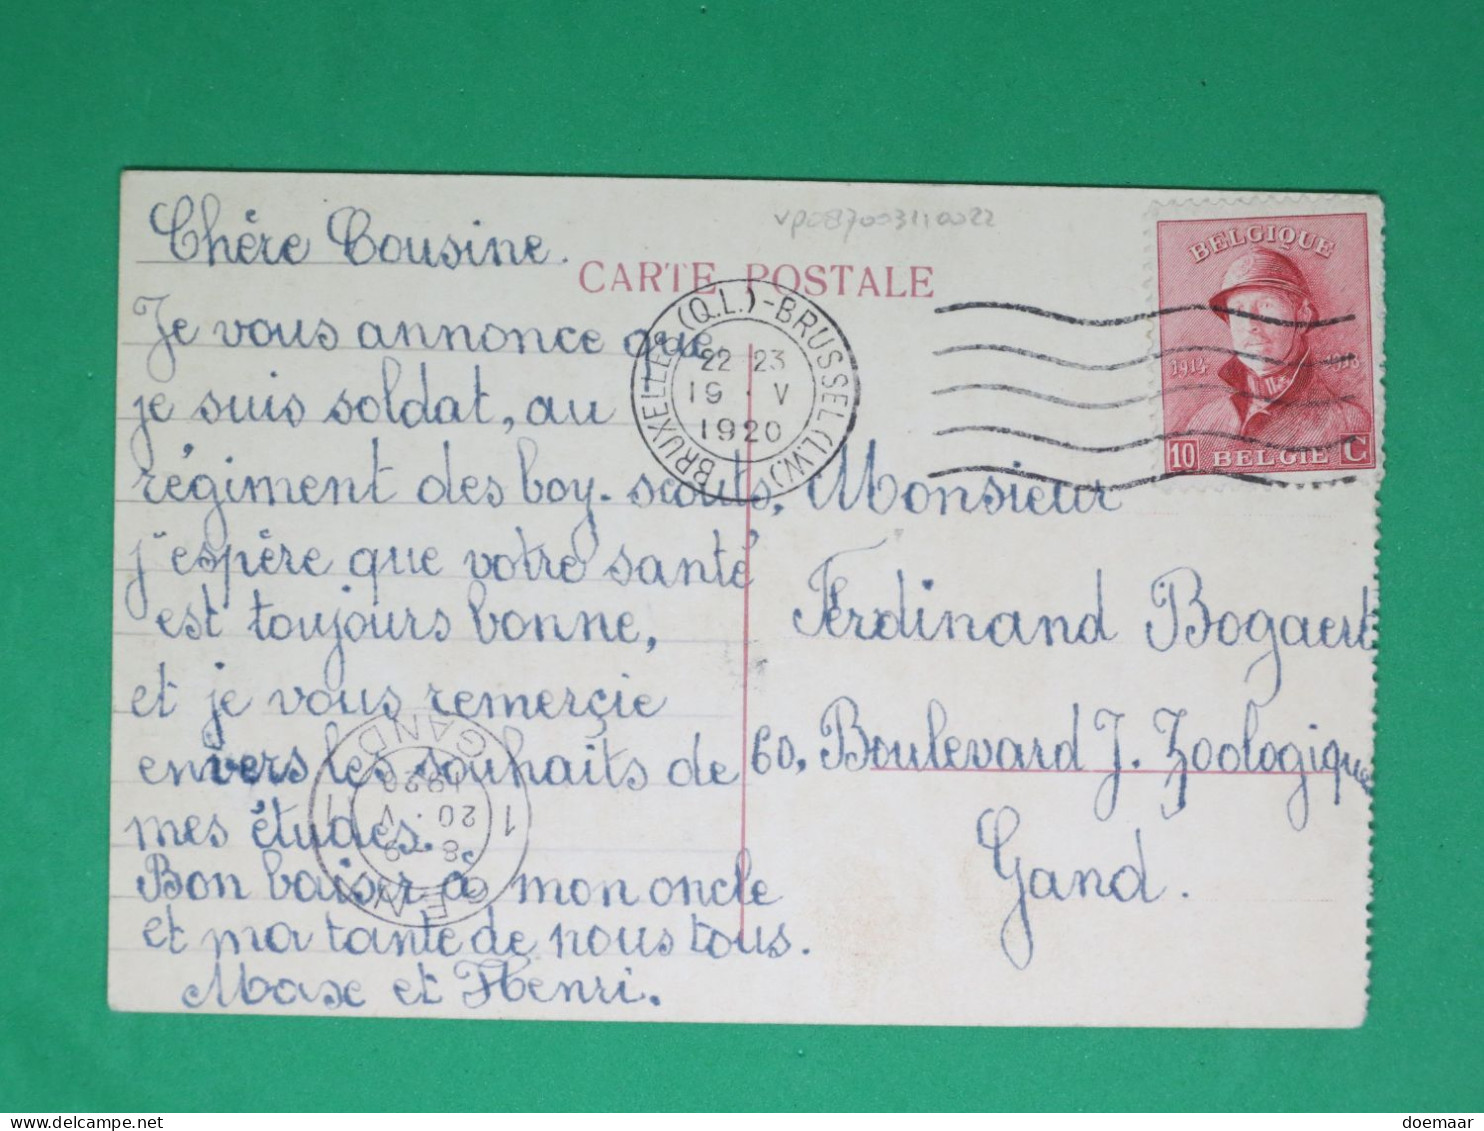 Chère Cousine.
Je vous annonce que
je suis soldat, au
régiment des boy-scouts,
j'espère que votre santé
est toujours bonne,
et je vous remerçie
envers les souhaits de
mes études.
Bon baisir à mon oncle
et ma tante de nous tous.
Max et Henri.
vp087003110022
CARTE POSTALE
BRUXELLES (Q.L.) - BRUSSEL (L.W.)
22 23
19 · V
1920
BELGIQUE
1914 1918
10 BELGIE C
Monsieur
Ferdinand Bogaert
60, Boulevard J. Zoologique
Gand.
1 GENT 1
8 - 9
20 · V
1920
GAND
doemaar